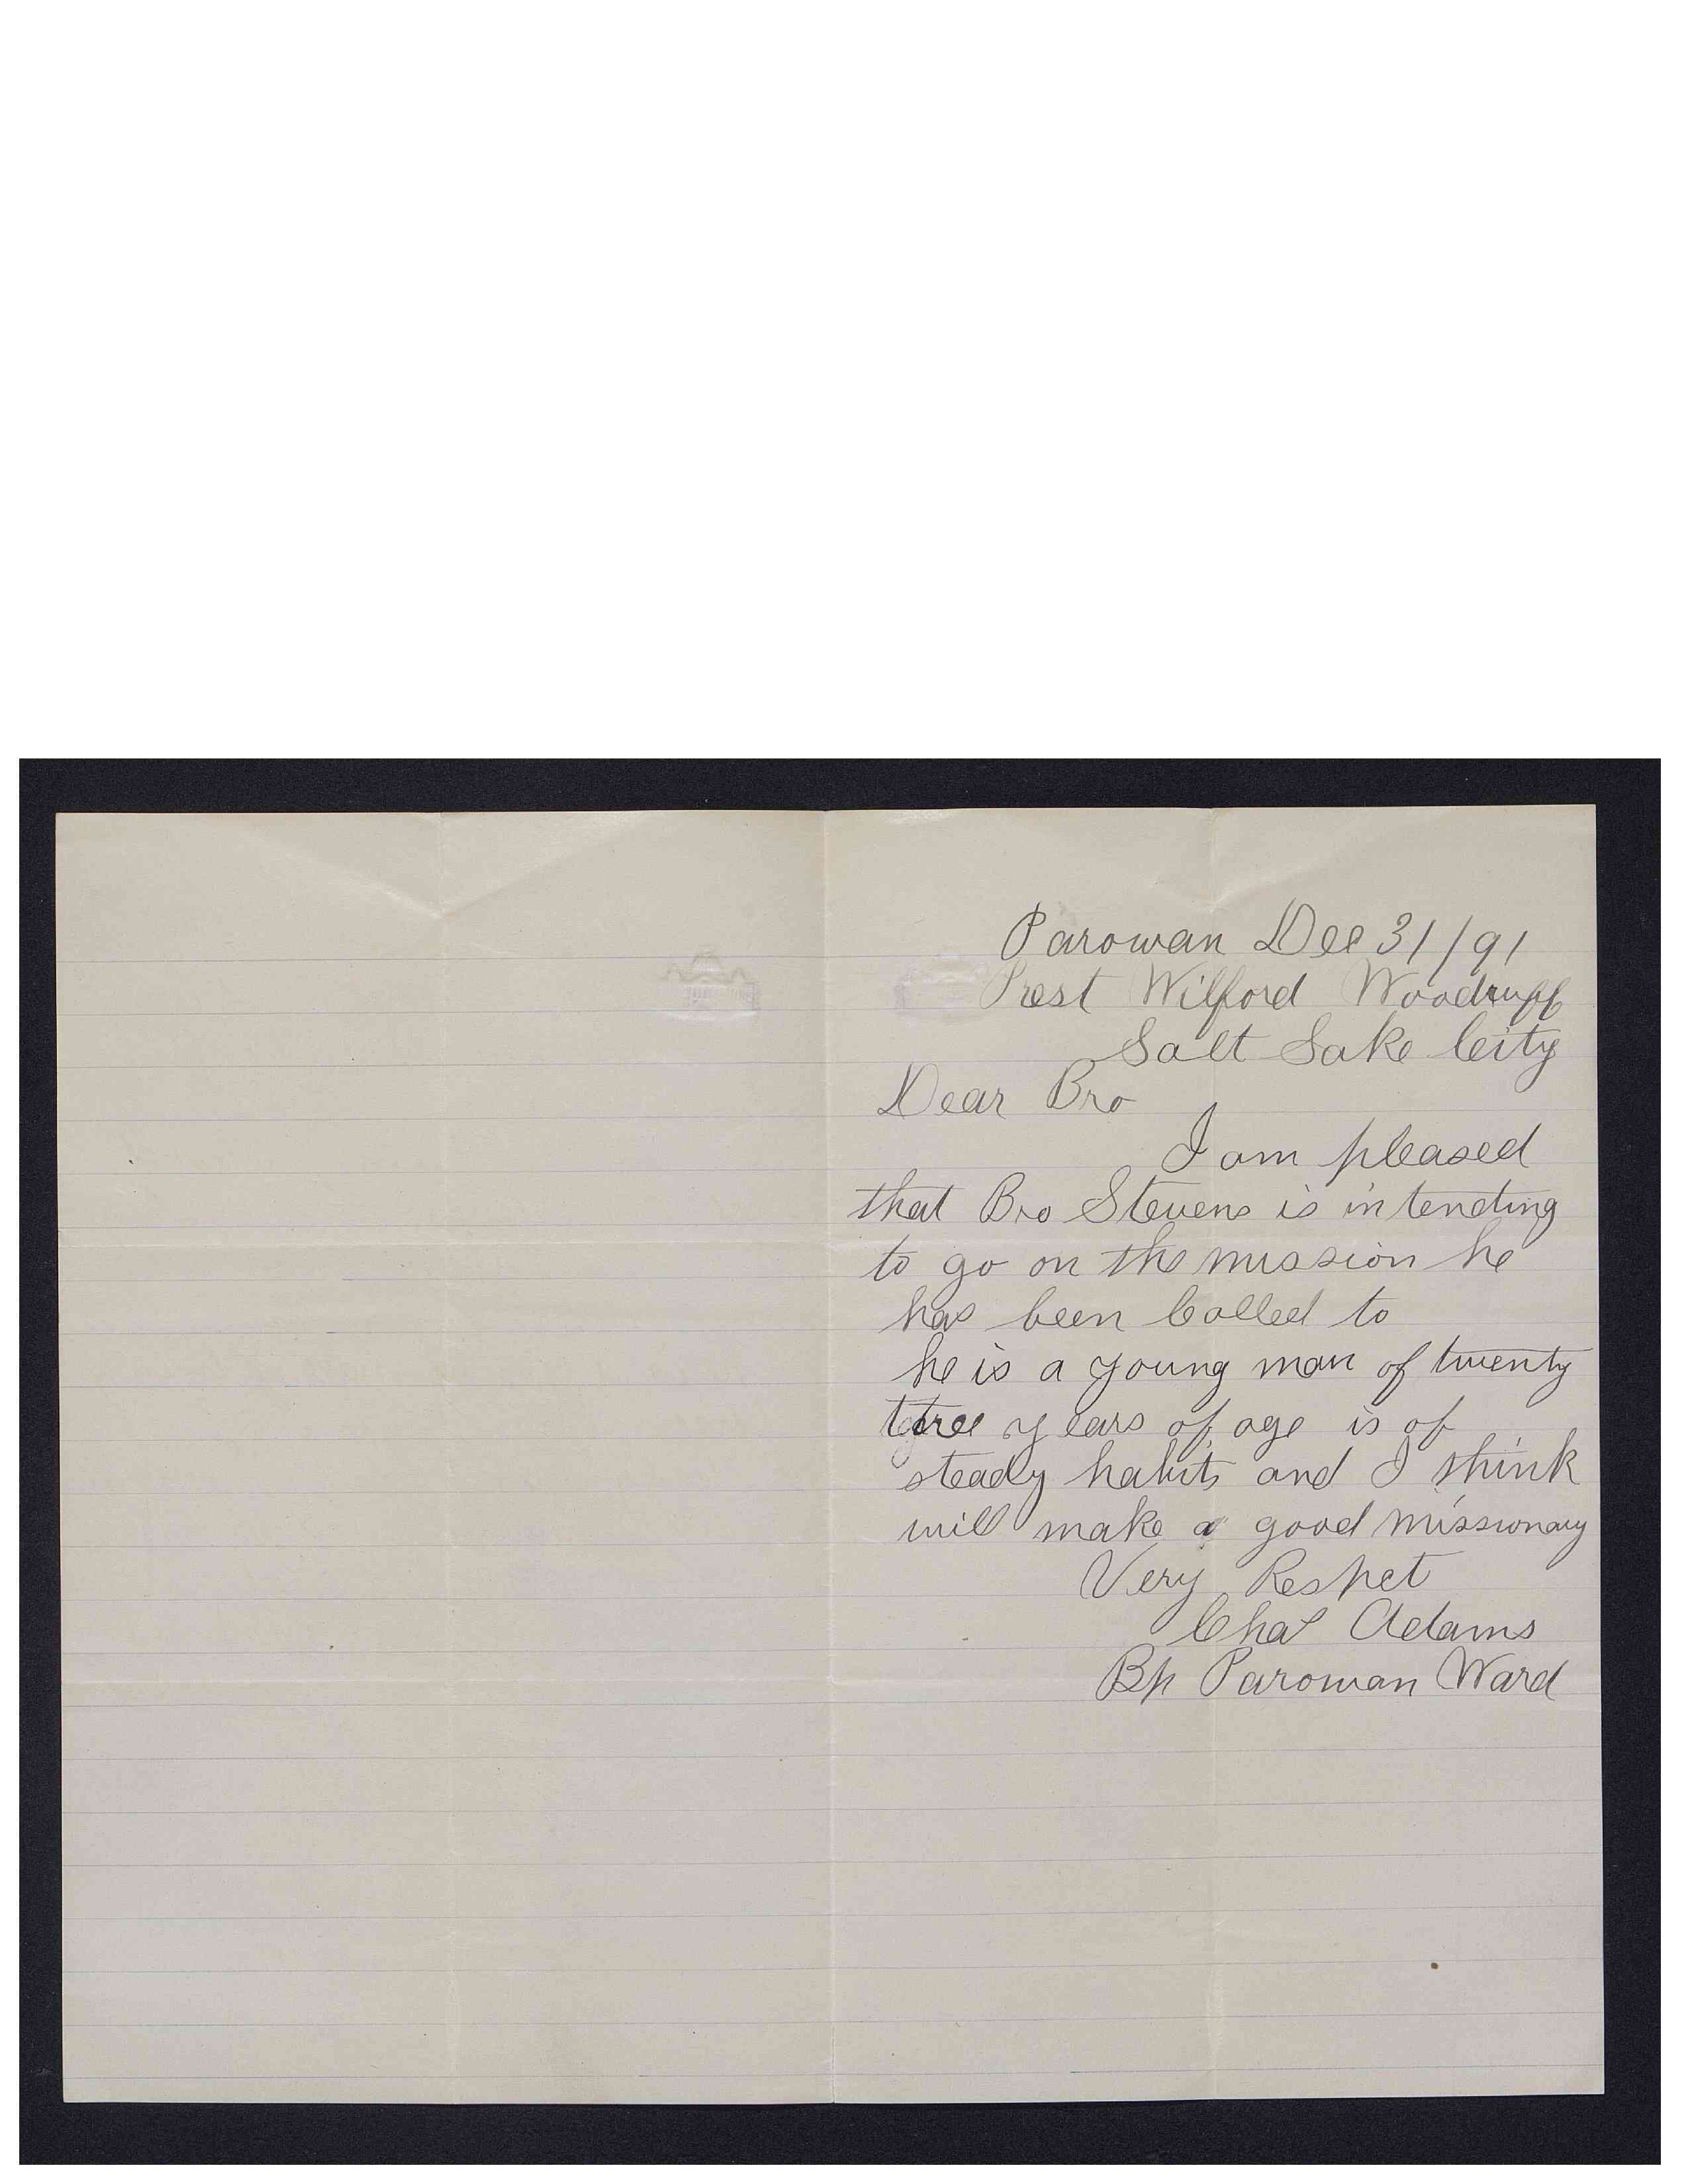 Parowan Dec 31/91
Prest Wilford Woodruff
Salt Lake City
Dear Bro
I am pleased
that Bro Stevens is intending
to go on the mission he
has been Called to
he is a young man of twenty
three years of age is of
steady habits and I think
will make a good missionary
Very Respct
Chas Adams
Bp Parowan Ward